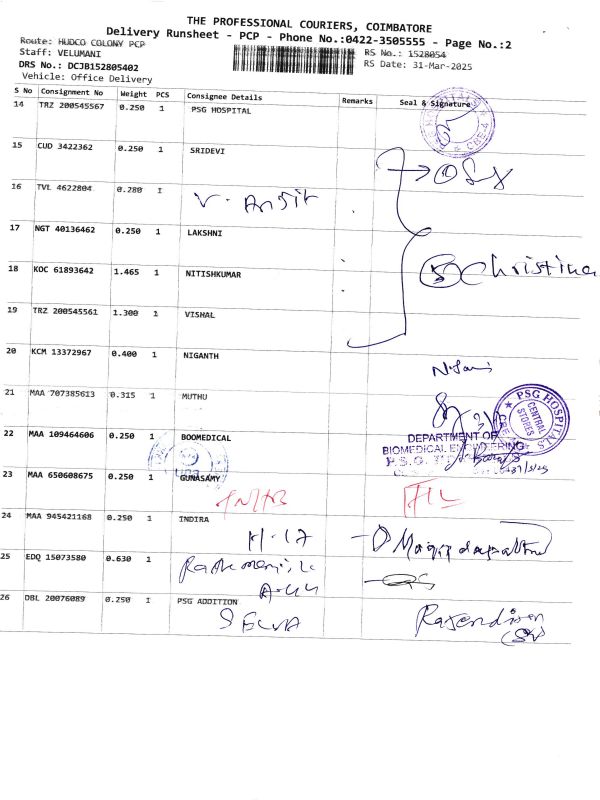 THE PROFESSIONAL COURIERS, COIMBATORE
Delivery Runsheet - PCP - Phone No.:0422-3505555 - Page No.:2
Route: HUDCO COLONY PCP RS No.: 1528054
Staff: VELUMANI RS Date: 31-Mar-2025
DRS No.: DCJB152805402
Vehicle: Office Delivery
S No Consignment No Weight PCS Consignee Details Remarks Seal & Signature
14 TRZ 200545567 0.250 1 PSG HOSPITAL
15 CUD 3422362 0.250 1 SRIDEVI
16 TVL 4622804 0.280 1
V. Ansit
17 NGT 40136462 0.250 1 LAKSHNI
18 KOC 61893642 1.465 1 NITISHKUMAR
5 Christina
19 TRZ 200545561 1.300 1 VISHAL
20 KCM 13372967 0.400 1 NIGANTH
21 MAA 707385613 0.315 1 MUTHU
PSG HOSPITALS
CENTRAL STORES
22 MAA 109464606 0.250 1 BOOMEDICAL
DEPARTMENT OF
BIOMEDICAL ENGINEERING
23 MAA 650608675 0.250 1 GUNASAMY
24 MAA 945421168 0.250 1 INDIRA
H-17
25 EDQ 15073580 0.630 1
A-44
26 DBL 20076089 0.250 1 PSG ADDITION
SELVA Rajendiren